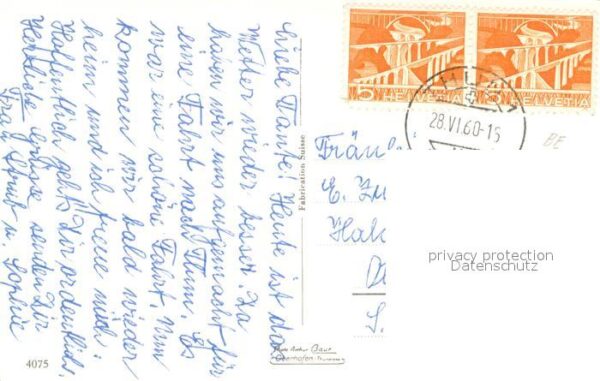 Liebe Tante! Heute ist das
Wetter wieder besser. Da
haben wir uns aufgemacht für
eine Fahrt nach Thun. Es
war eine schöne Fahrt. Nun
kommen wir bald wieder
heim und ich freue mich.
Hoffentlich geht's Dir ordentlich.
Herzliche Grüsse senden Dir
Frau u. Sophie
4075
Fabrication Suisse
Photo Arthur Baur
Oberhofen
5 HELVETIA
5 HELVETIA
28.VI.60-15
BE
Fräul
E. Zu
Hal
S.
privacy protection
Datenschutz